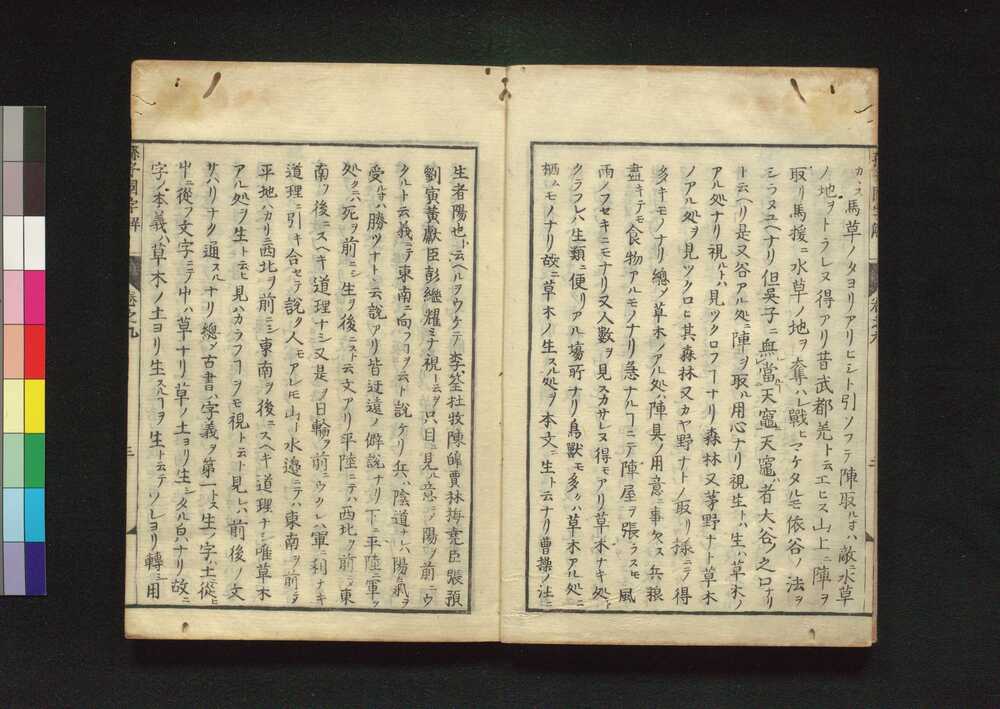 カス馬草ノタヨリアリヒシト引ソフテ陣取ルオハ敵ニ水草
ノ地ヲトラレヌ得アリ昔武都羌ト云エヒス山上ニ陣ヲ
取リ馬援ニ水草ノ地ヲ奪ハレ戰ヒマケタルモ依谷ノ法ヲ
シラヌユヘナリ但吳子ニ無當天竈天竈ハ者大谷之口ナリ
ト云ヘリ是又谷アル処ニ陣ヲ取ル用心ナリ視生トハ生ハ草木ノ
アル処ナリ視ルトハ見ツクロフコナリ森林又茅野ナト草木
ノアル処ヲ見ツクロヒ其森林又カヤ野ナトノ取リ様ニテ得
多キモノナリ總メ草木ノアル処ハ陣具ノ用意ニ事欠ス兵粮
盡キテモ食物アルモノナリ急ナルコニテ陣屋ヲ張ラスモ風
雨ノフセキニモナリ又人數ヲ見スカサレヌ得モアリ草木ナキ処ト
クラフレハ生類ニ便リアル場所ナリ鳥獸モ多クハ草木アル処ニ
栖ムモノナリ故ニ草木ノ生スル処ヲ本文ニ生ト云ナリ曹操ノ注ニ
生者陽也ト云ヘルヲウケテ李筌杜牧陳皥賈林梅堯臣張預
劉寅黄獻臣彭繼耀ミナ視ト云ヲ只目ニ見ル意ニメ陽ノ前ニウ
クルト云義ニテ東南ニ向フコヲ云ト說ケリ兵ハ陰道ナレハ陽氣ヲ
愛ルオハ勝ツナト云說アリ皆迂遠ノ僻說ナリ下ニ平陸ニ軍ヲ
処クニハ死ヲ前ニシ生ヲ後ニストス云文アリ平陸ニテハ西北ヲ前ニメ東
南ヲ後ニスヘキ道理ナシ又是ヲ日輪ヲ前ニウクレハ軍ニ利ナキ
道理ニ引キ合セテ說ク人モアレモ山ト水邊ニテハ東南ヲ前ニシテ
平地ハカリニ西北ヲ前ニシ東南ヲ後ニスヘキ道理ナシ唯草木
アル処ヲ生ト云ヒ見ハカラフコヲモ視ト云ト見レハ前後ノ文
サハリナク通スルナリ總メ古書ハ字義ヲ第一トス生ノ字ハ土ニ從ヒ
屮ニ從フ文字ニテ屮ハ草ナリ草ノ土ヨリ生シタル皃ナリ故ニ
字ノ本義ハ草木ノ土ヨリ生スルコヲ生ト云テソレヨリ轉シ用